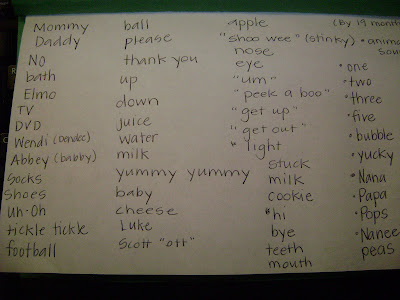 Mommy
Daddy
No
bath
Elmo
TV
DVD
Wendi (Dendec)
Abbey (babby)
Socks
Shoes
uh-oh
tickle tickle
football
ball
please
thank you
up
down
juice
water
milk
yummy yummy
baby
cheese
Luke
Scott "ott"
apple
"shoo wee" (stinky)
nose
eye
"um"
"peek a boo"
"get up"
"get out"
* light
stuck
milk
cookie
*hi
bye
teeth
mouth
(by 19 month
• anima
sou
• one
• two
• three
• five
• bubble
• yucky
• Nana
• Papa
• Pops
• Nanee
peas